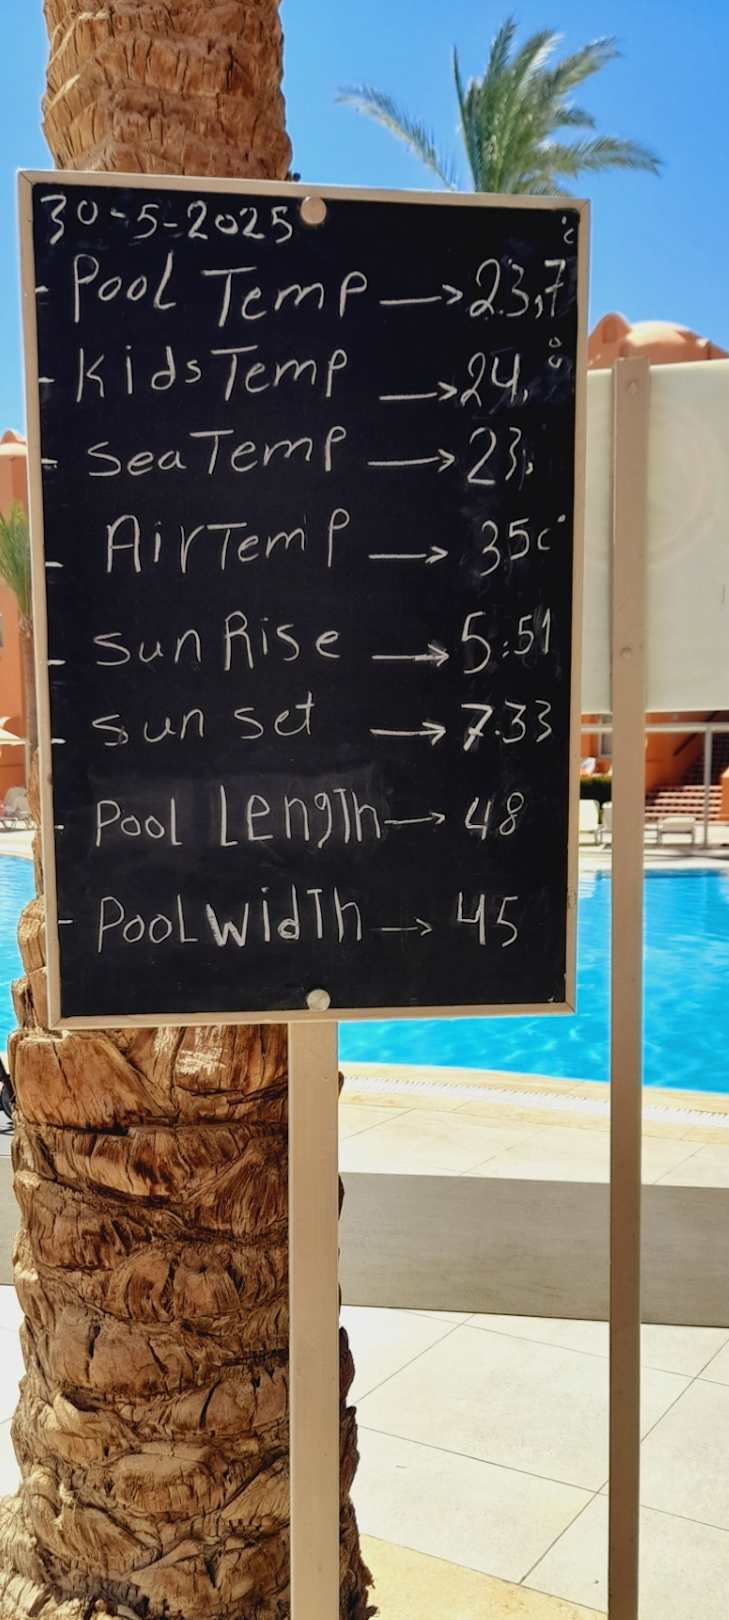 30-5-2025
- Pool Temp → 23,7 °c
- Kids Temp → 24,°
- Sea Temp → 23,
- Air Temp → 35c°
- Sun Rise → 5:51
- Sun set → 7.33
- Pool Length → 48
- Pool Width → 45